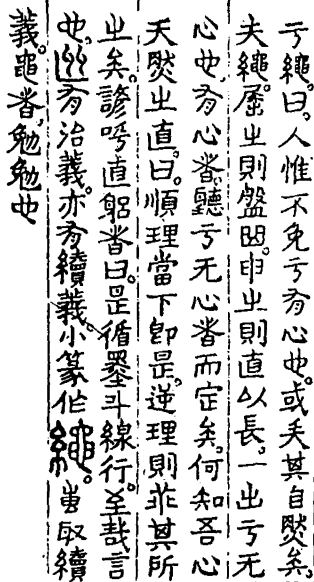 亏繩。曰。人惟不免亏有心也。或失其自然矣。
夫繩。屈㞢則盤囘。申㞢則直以長。一出亏无
心也。有心者。聽亏无心者而定矣。何知吾心
天然㞢直。曰。順理當下卽是。逆理則非其所
㞢矣。諺呼直躳者曰。是循墨斗線行。至哉言
也。有治義。亦有續義。小篆作繩。蚩取續
義。黽者。勉勉也